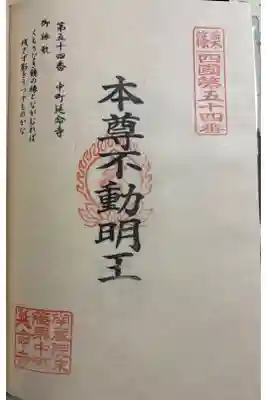 四國第五十四番
本尊不動明王
第五十四番 中町延命寺
御詠歌
くもりなき鏡の縁とながむれば
残さず影をうつすものかな